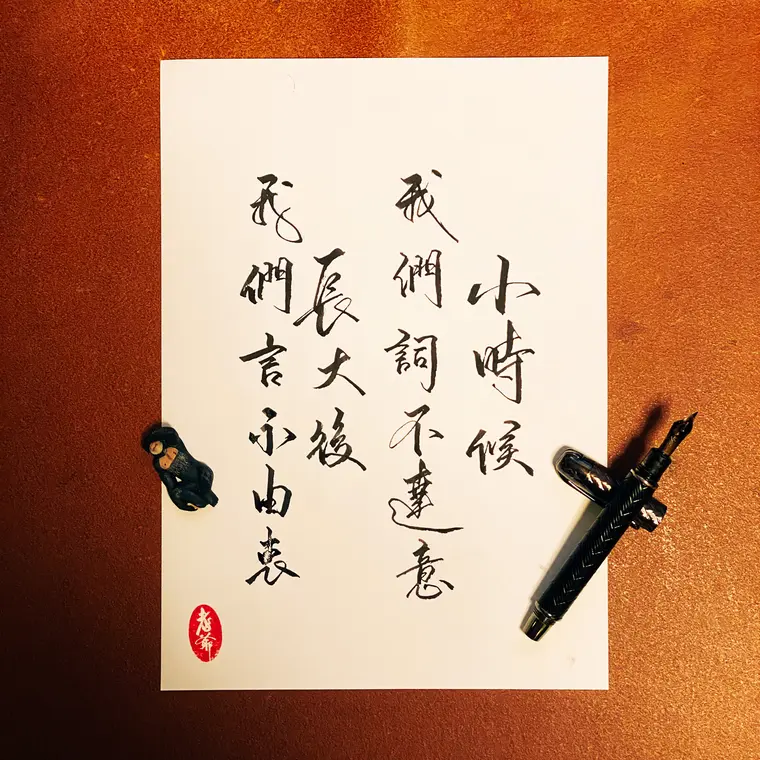 小時候
我們詞不達意
長大後
我們言不由衷
老爺